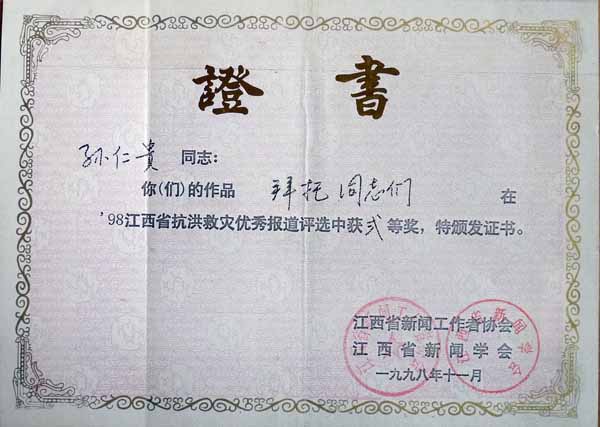 證書
孙仁贵 同志：
你(们)的作品 拜托同志们 在
'98江西省抗洪救灾优秀报道评选中获 弍 等奖，特颁发证书。
江西省新闻工作者协会
江西省新闻学会
一九九八年十一月